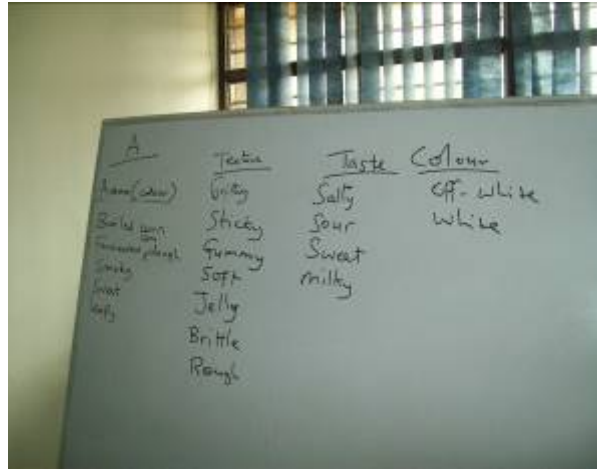 A
Aroma (odour)
Boiled corn
Fermented dough
Smoky
Sweet
Leafy
Texture
Gritty
Sticky
Gummy
Soft
Jelly
Brittle
Rough
Taste
Salty
Sour
Sweet
Milky
Colour
Off-white
White